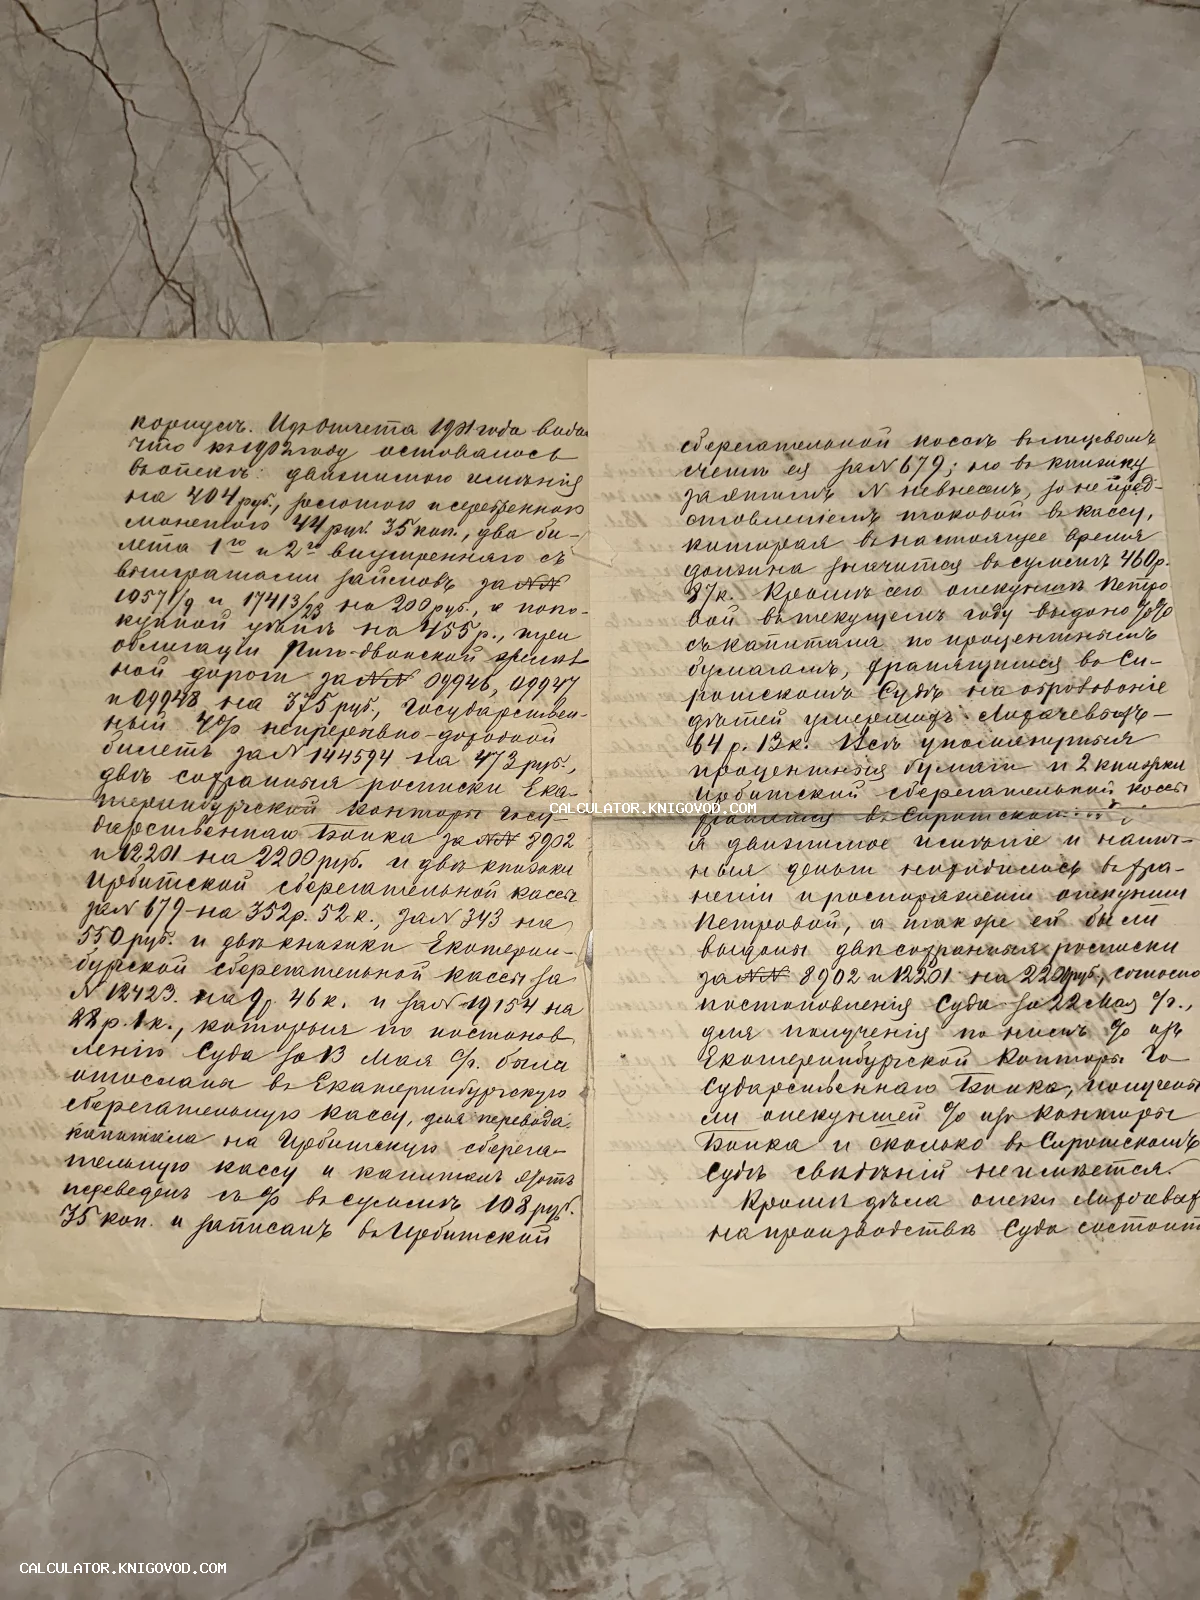 корпусъ. Изъ отчета 1901 года видн
что къ 1902 году оставалось
въ опекѣ: движимого имѣнія
на 404 руб., золотою и серебренною
монетою 44 руб. 35 коп., два би-
лета 1го и 2го внутренняго съ
выигрышами займовъ за №№
и 17413/23 на 200 руб., а поко-
купной цѣнѣ на 455 р., три
облигаціи Риго-Двинской желѣз
ной дороги за №№ 09946, 09947
и 09948 на 375 руб., Государствен-
ный 4% непрерывно-доходной
билетъ за № 144594 на 473 руб.,
двѣ сохранныя росписки Ека-
теринбургской Конторы Госу-
дарственнаго Банка за №№ 8902
и 12201 на 2200 руб. и двѣ книжки
Ирбитской сберегательной кассы
за № 679 на 352 р. 52 к., за № 343 на
550 руб. и двѣ книжки Екатерин-
бургской сберегательной кассы за
№ 12423 на 9 р. 46 к. и за № 19154 на
88 р. 1 к., которыя по постанов
ленію Суда за 13 Мая с/г. были
отосланы въ Екатеринбургскую
сберегательную кассу, для перевода
капитала на Ирбитскую сберега-
тельную кассу и капиталъ этотъ
переведенъ съ % въ суммѣ 108 руб.
75 коп. и записанъ въ Ирбитской
сберегательной кассѣ въ лицевомъ
счетѣ ея за № 679; но въ книжку
за этимъ № не внесенъ, за не пред-
ставленіемъ таковой въ кассу,
которая въ настоящее время
должна значится въ суммѣ 460 р.
87 к. Кромѣ сего опекуншѣ Петро
вой въ текущемъ году выдано %%
съ капитала по процентнымъ
бумагамъ, хранящимся въ Си-
ротскомъ Судѣ на образованіе
дѣтей умершихъ Лихачевыхъ —
64 р. 13 к. Всѣ упомянутыя
процентныя бумаги и 2 книжки
Ирбитской сберегательной кассы
хранятся въ Сиротскомъ
я движимое имѣніе и налич-
ныя деньги находились въ хра-
неніи и распоряженіи опекунши
Петровой, а также ей были
выданы двѣ сохранныя росписки
за №№ 8902 и 12201 на 2200 руб., согласно
постановленія Суда за 22 Мая с/г.,
для полученія по нимъ % изъ
Екатеринбургской Конторы Го
сударственнаго Банка, получены
ли опекуншей % изъ Конторы
Банка и сколько въ Сиротскомъ
Судѣ свѣдѣній не имѣется.
Кромѣ дѣла опеки Лихачевых
на производствѣ Суда состоит
CALCULATOR.KNIGOVOD.COM
CALCULATOR.KNIGOVOD.COM
CALCULATOR.KNIGOVOD.COM